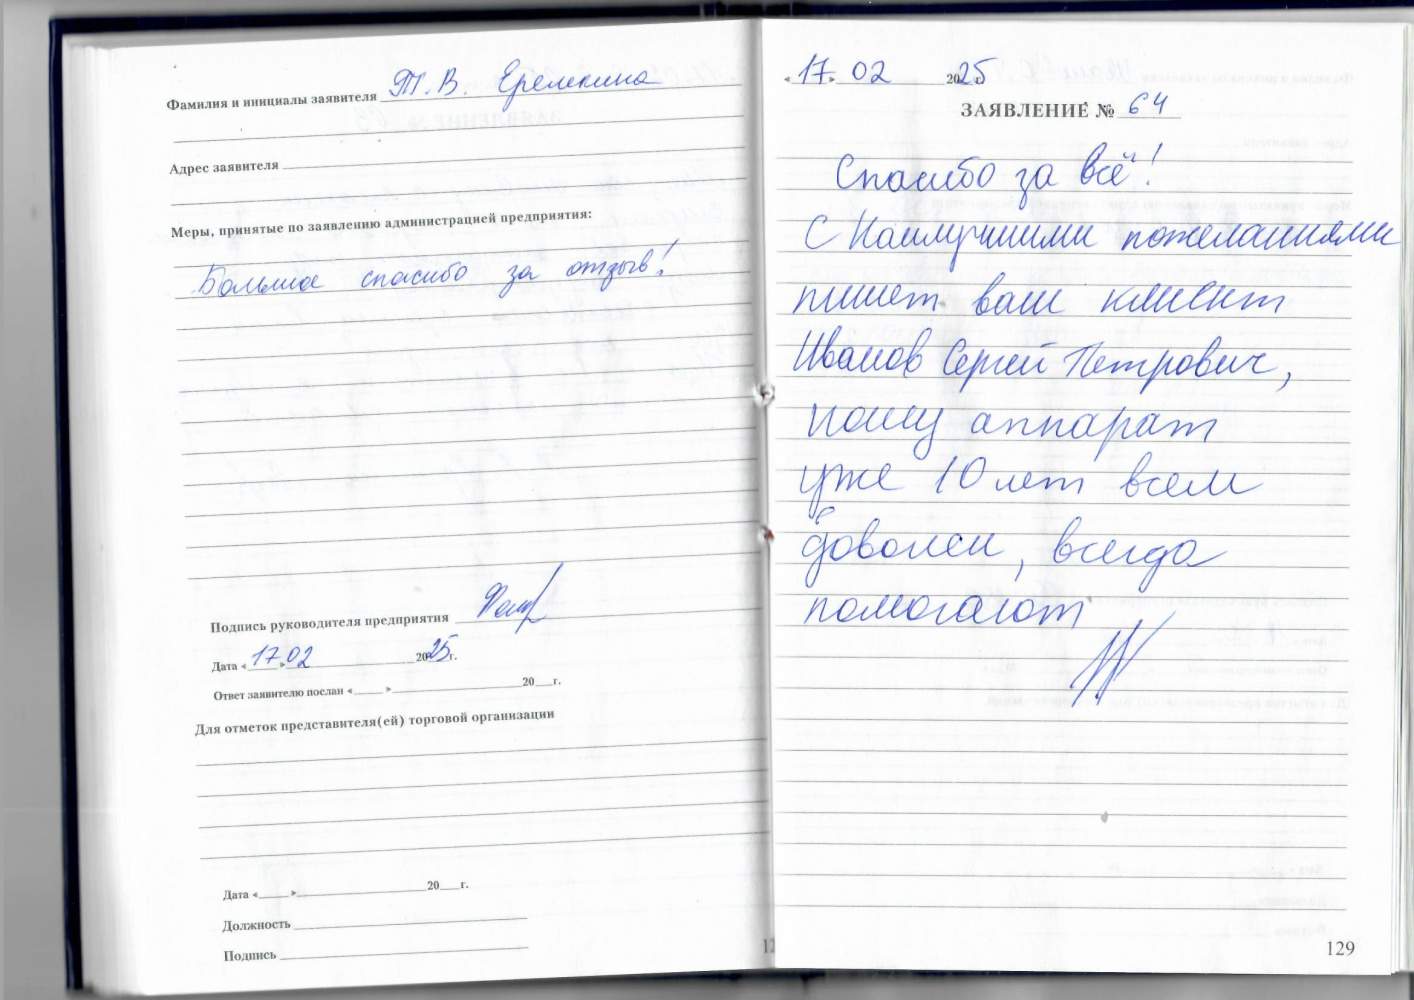 Фамилия и инициалы заявителя Т. В. Еремкина
Адрес заявителя
Меры, принятые по заявлению администрацией предприятия:
Большое спасибо за отзыв!
Подпись руководителя предприятия
Дата «17» 02 2025 г.
Ответ заявителю послан «___» 20__г.
Для отметок представителя(ей) торговой организации
Дата «___» 20__г.
Должность
Подпись
«17» 02 2025 г.
ЗАЯВЛЕНИЕ № 64
Спасибо за всё!
С Наилучшими пожеланиями
пишет ваш клиент
Иванов Сергей Петрович,
ношу аппарат
уже 10 лет всем
доволен, всегда
помогают
129